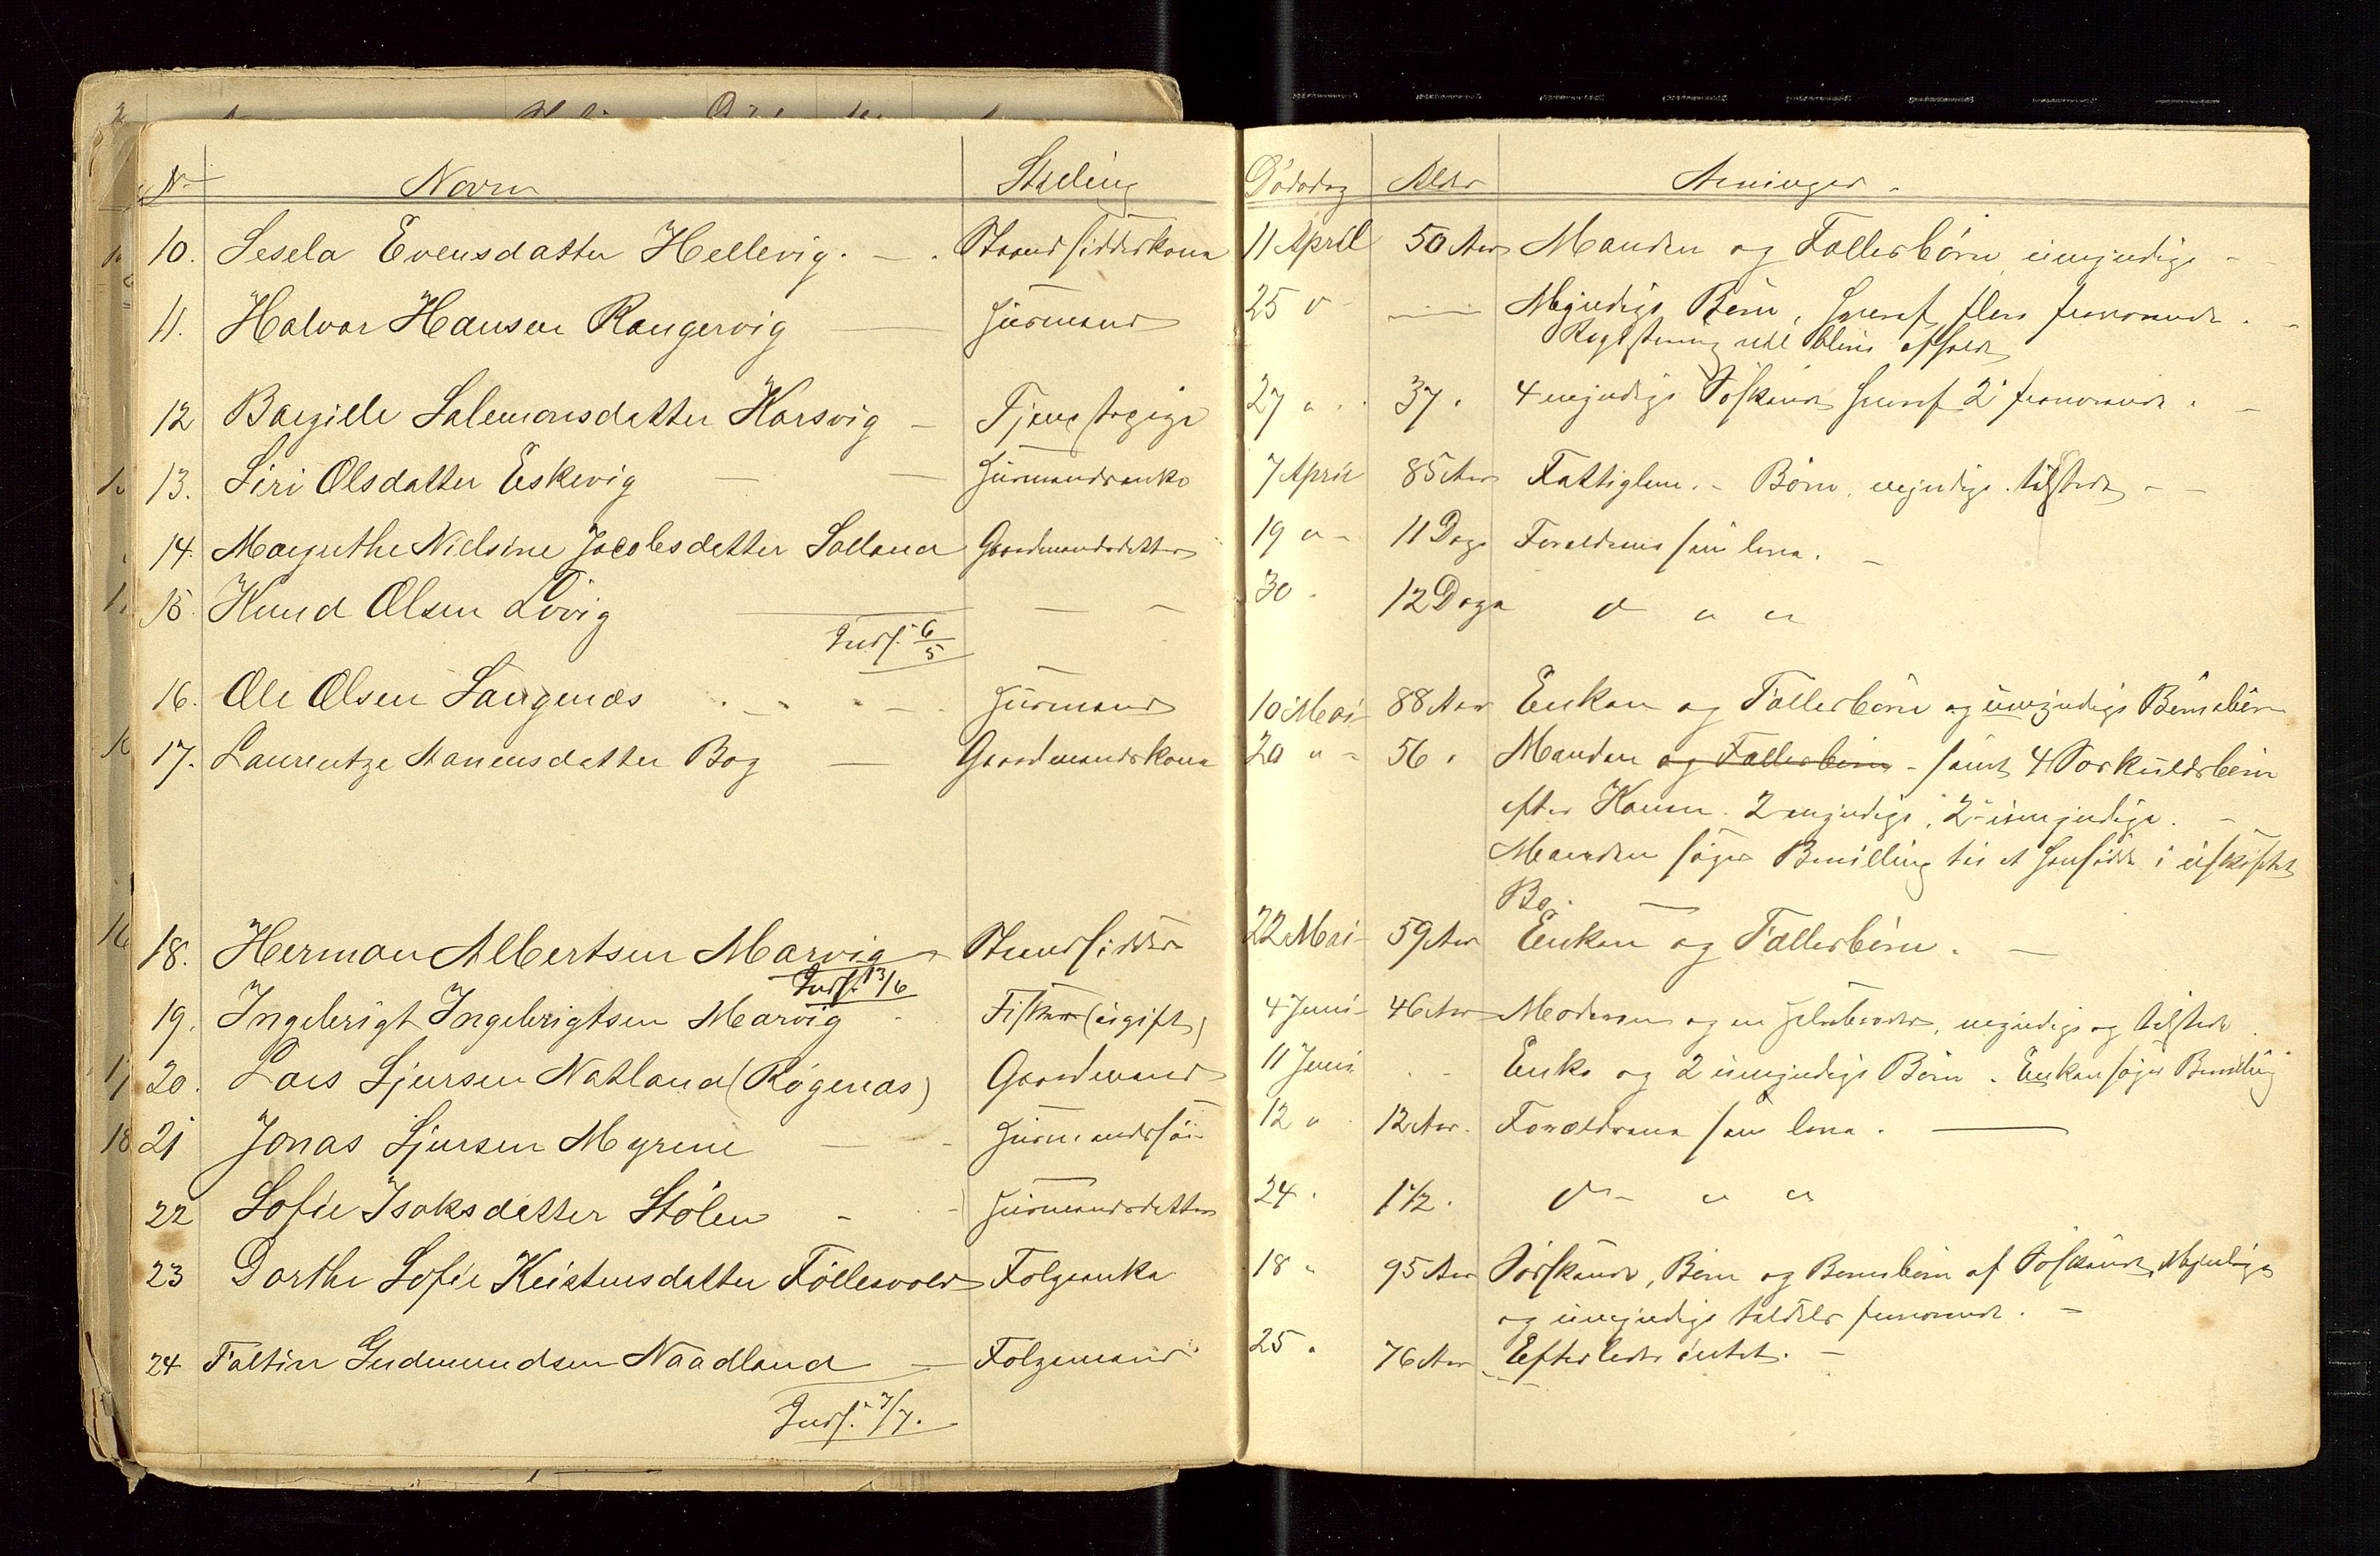 Nr Navn Stilling Dødsdag Alder Arvinger.
10. Sesela Evensdatter Hellevig. Strandsidderkone 11 April 50 Aar Manden og Fællesbørn umyndige
11. Halvor Hansen Rangervig Husmand 25 " Myndige Børn, hvoraf flere fraværende.
Registrering vil blive afholdt
12 Bargille Salemonsdatter Korsvig Tjenestepige 27 " 37. 4 myndige Søskende hvoraf 2 fraværende.
13. Siri Olsdatter Eskevig Husmandsenke 7 April 85 Aar Fattiglem. Børn, myndige. tilstede
14. Magrethe Nielsine Jacobsdatter Salland Gaardmandsdatter 19 " 11 Dage Forældrene som leve.
15 Knud Olsen Løvig 30. 12 Dage d " "
Inds. 6/5
16. Ole Olsen Langenæs Husmand 10 Mai 88 Aar Enken og Fællesbørn og umyndige Børnebørn
17. Laurentze Manensdatter Bog Gaardmandskone 20 " 56. Manden og Fællesbørn - samt 4 Særkuldsbørn
efter Konen. 2 myndige, 2 umyndige.
Manden søger Bevilling til at hensidde i uskiftet
Bo.
18. Herman Albertsen Marvig Strandsidder 22 Mai 59 Aar Enken og Fællesbørn.
Inds. 13/6
19. Ingebrigt Ingebrigtsen Marvig Fisker (ugift) 4 Juni 46 Aar Moderen og en Halvbroder, myndige og tilstede.
20. Lars Sjursen Natland (Røgenæs) Gaardmand 11 Juni Enke og 2 umyndige Børn. Enken søger Bevilling
21 Jonas Sjursen Myrene Husmandssøn 12 " 12 Aar. Forældrene som leve.
22 Sofie Isaksdatter Stølen Husmandsdatter 24. 1 1/2. d " "
23 Dorthe Sofie Kristensdatter Føllesvold Folgeenke 18 " 95 Aar Søskende, Børn og Børnebørn af Søskende, Myndige
og umyndige tildels fraværende.
24 Faltin Gudmundsen Naadland Folgemand 25 " 76 Aar Efterlader intet.
Inds. 3/7.